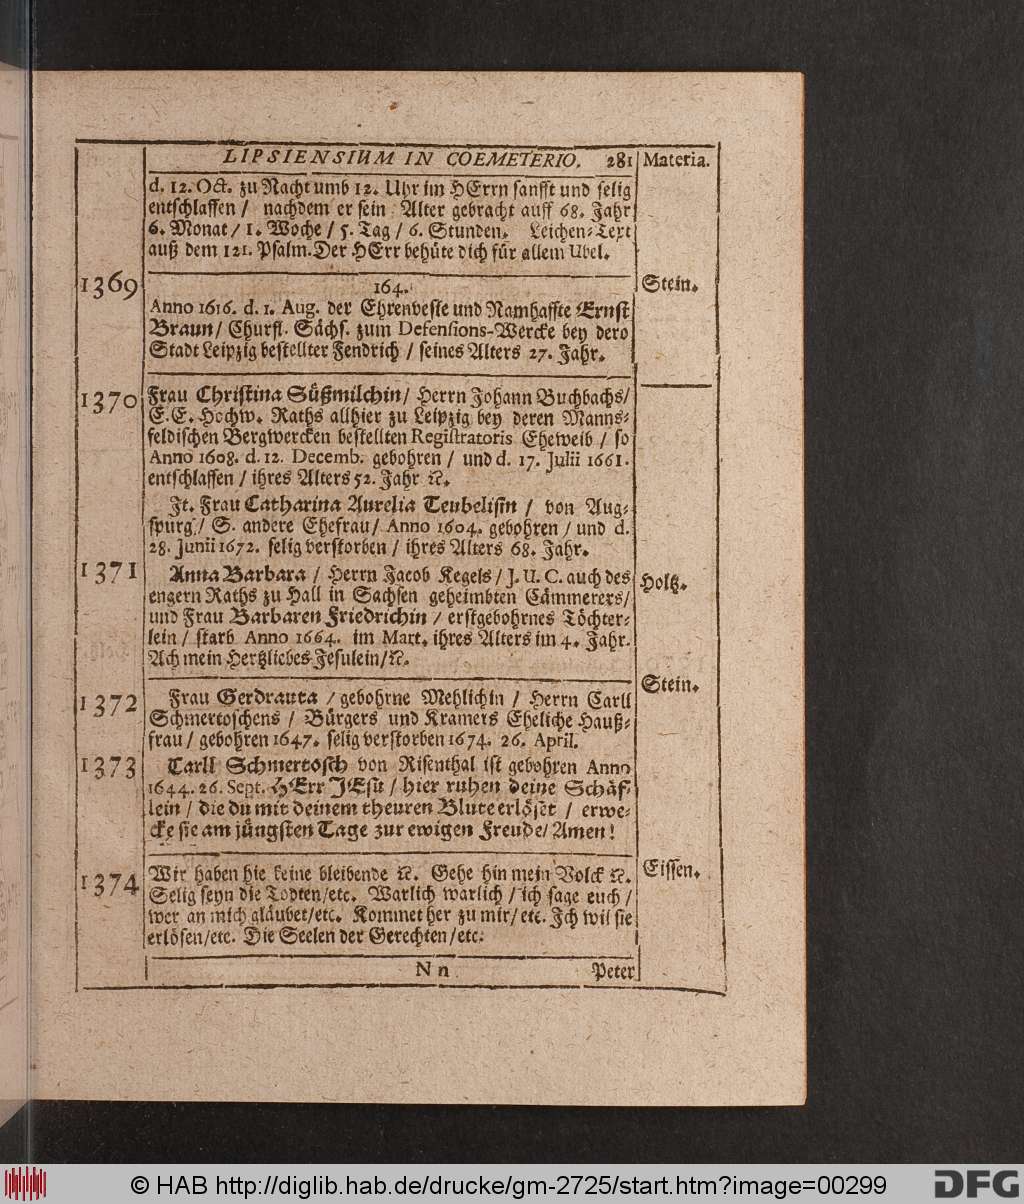 LIPSIENSIUM IN COEMETERIO. 281 Materia.
d. 12. Oct. zu Nacht umb 12. Uhr im HErrn sanfft und selig
entschlaffen / nachdem er sein Alter gebracht auff 68. Jahr
6. Monat / 1. Woche / 5. Tag / 6. Stunden. Leichen-Text
auß dem 121. Psalm. Der HErr behüte dich für allem Ubel.
164.
1369 Anno 1616. d. 1. Aug. der Ehrenveste und Namhaffte Ernst Stein.
Braun / Churfl. Sächs. zum Defensions-Wercke bey dero
Stadt Leipzig bestellter Fendrich / seines Alters 27. Jahr.
1370 Frau Christina Süßmilchin / Herrn Johann Buchbachs /
E. E. Hochw. Raths allhier zu Leipzig bey deren Manns-
feldischen Bergwercken bestellten Registratoris Eheweib / so
Anno 1608. d. 12. Decemb. gebohren / und d. 17. Julii 1661.
entschlaffen / ihres Alters 52. Jahr ꝛc.
It. Frau Catharina Aurelia Teubelisin / von Aug-
spurg / S. andere Ehefrau / Anno 1604. gebohren / und d.
28. Junii 1672. selig verstorben / ihres Alters 68. Jahr.
1371 Anna Barbara / Herrn Jacob Kegels / J. U. C. auch des Holtz.
engern Raths zu Hall in Sachsen geheimbten Cämmerers /
und Frau Barbaren Friedrichin / erstgebohrnes Töchter-
lein / starb Anno 1664. im Mart. ihres Alters im 4. Jahr.
Ach mein Hertzliebes Jesulein / ꝛc.
1372 Frau Gerdrauta / gebohrne Mehlichin / Herrn Carll Stein.
Schmertoschens / Bürgers und Kramers Eheliche Hauß-
frau / gebohren 1647. selig verstorben 1674. 26. April.
1373 Carll Schmertosch von Risenthal ist gebohren Anno
1644. 26. Sept. HErr JEsu / hier ruhen deine Schäf-
lein / die du mit deinem theuren Blute erlöset / erwe-
cke sie am jüngsten Tage zur ewigen Freude / Amen!
1374 Wir haben hie keine bleibende ꝛc. Gehe hin mein Volck ꝛc. Eissen.
Selig seyn die Todten / etc. Warlich warlich / ich sage euch /
wer an mich gläubet / etc. Kommet her zu mir / etc. Ich wil sie
erlösen / etc. Die Seelen der Gerechten / etc.
N n Peter
© HAB http://diglib.hab.de/drucke/gm-2725/start.htm?image=00299
DFG